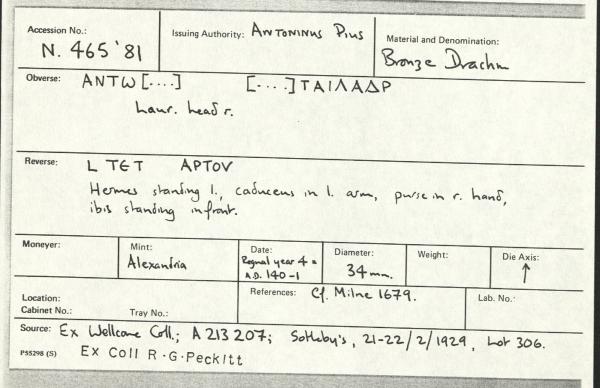 Accession No.: N. 465'81
Issuing Authority: ANTONINUS PIUS
Material and Denomination: Bronze Drachm
Obverse: ANTω[....] [....]TAIΛAΔP
Laur. head r.
Reverse: L TЄT APTOV
Hermes standing l., caduceus in l. arm, purse in r. hand,
ibis standing in front.
Moneyer:
Mint: Alexandria
Date: Regnal year 4 = A.D. 140-1
Diameter: 34 mm.
Weight:
Die Axis: ↑
Location:
Cabinet No.: Tray No.:
References: Cf. Milne 1679.
Lab. No.:
Source: Ex Wellcome Coll.; A 213 207; Sotheby's, 21-22/2/1929, Lot 306.
P55298 (S) Ex Coll R.G.Peckitt